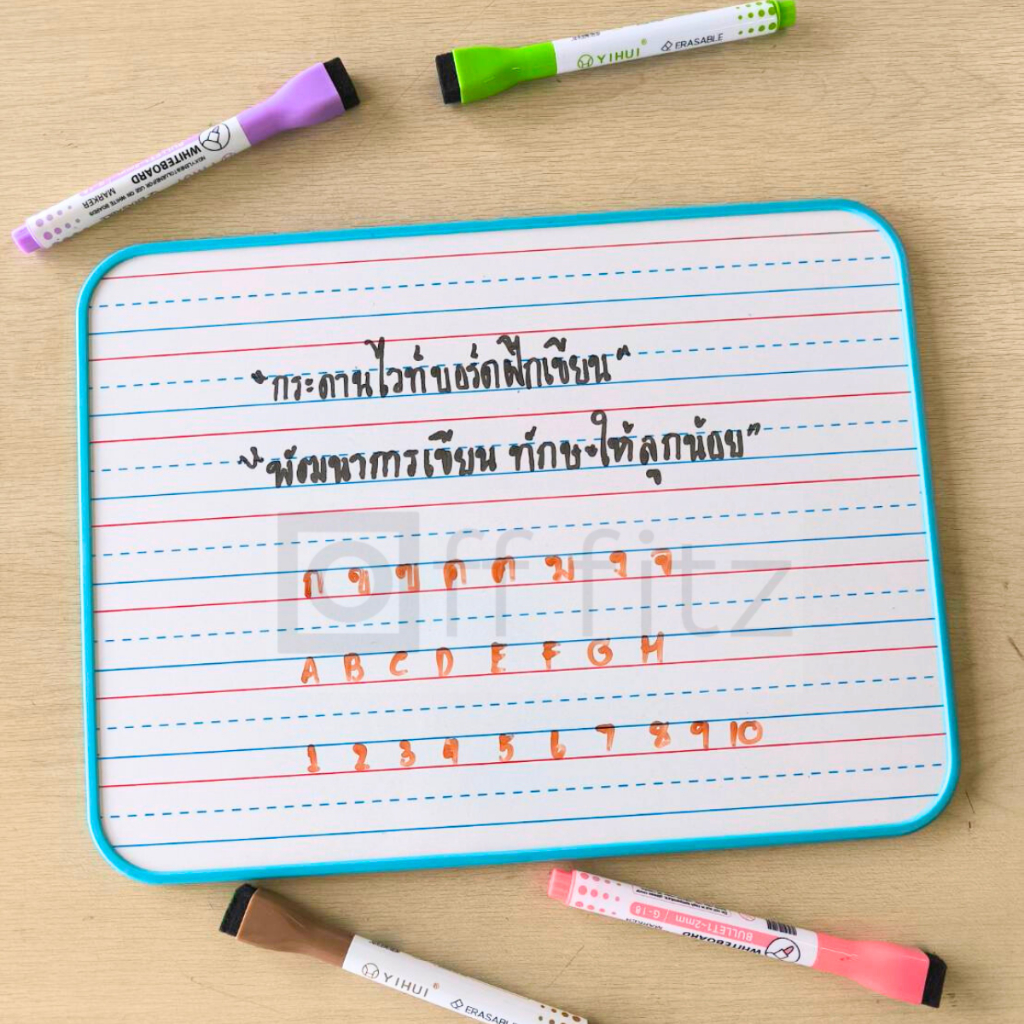 YIHUI ® ERASABLE
WHITEBOARD
MARKER
"กระดานไวท์บอร์ดฝึกเขียน"
"พัฒนาการเขียน ทักษะให้ลูกน้อย"
ก ข ฃ ค ฅ ฆ ง จ
off fitz
A B C D E F G H
1 2 3 4 5 6 7 8 9 10
BULLET1-2mm / G-18
WHITEBOARD
MARKER
YIHUI ® ERASABLE